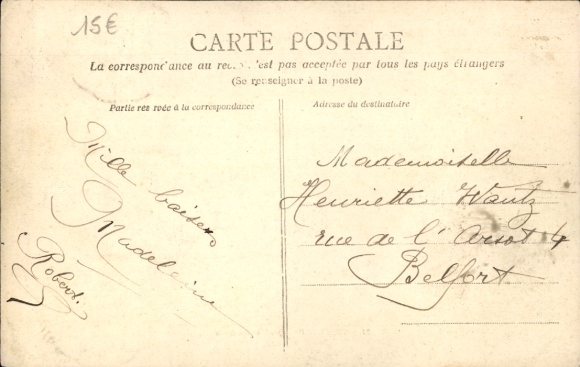 15€
CARTE POSTALE
La correspondance au recto n'est pas acceptée par tous les pays étrangers
(Se renseigner à la poste)
Partie réservée à la correspondance
Adresse du destinataire
Mille baisers
Madeleine
Robert.
Mademoiselle
Henriette Wantz
rue de l'Arsot 4
Belfort